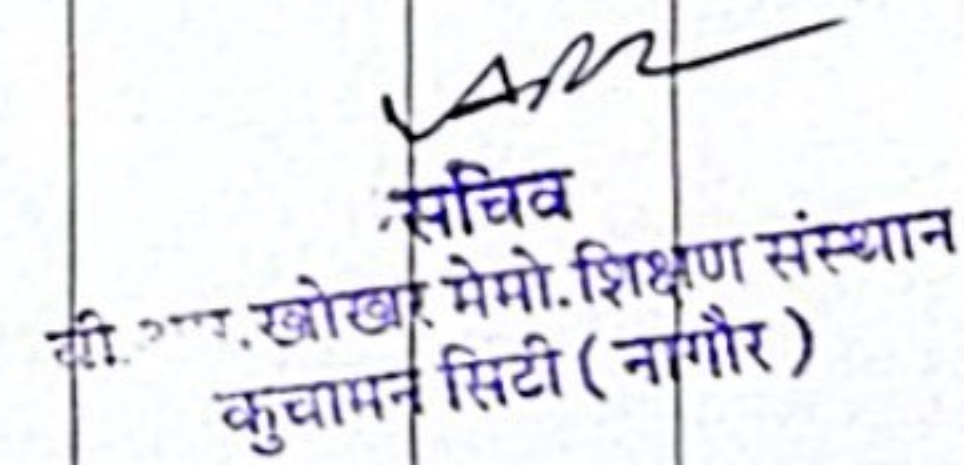 सचिव
खोखर मेमो. शिक्षण संस्थान
कुचामन सिटी ( नागौर )